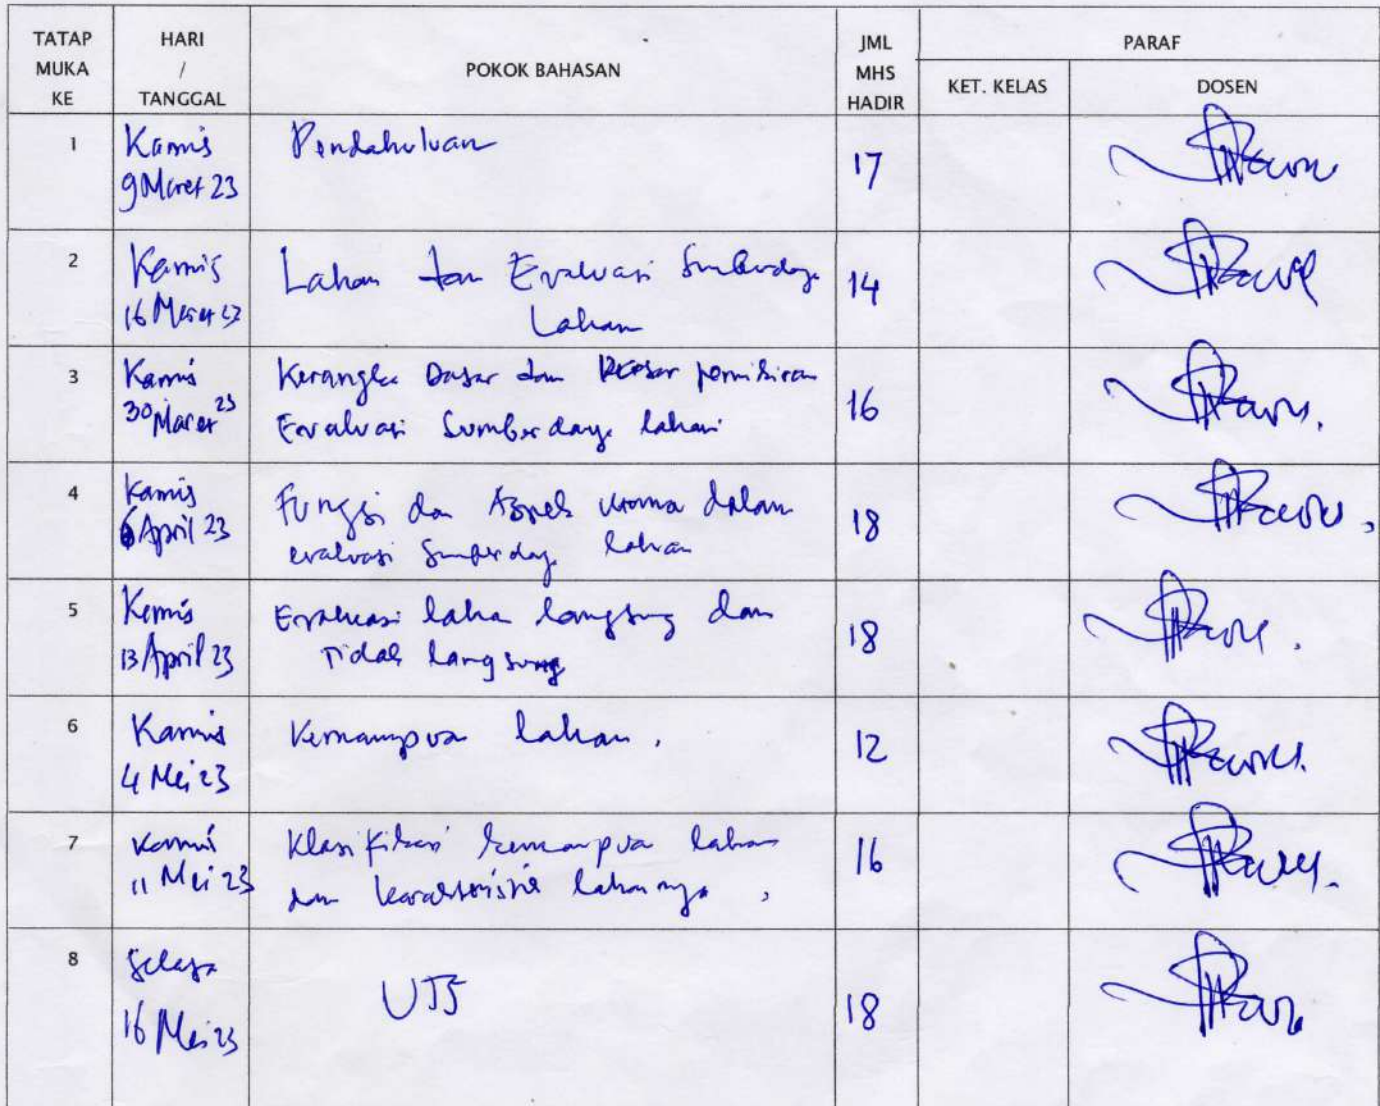 TATAP MUKA KE
HARI / TANGGAL
POKOK BAHASAN
JML MHS HADIR
PARAF
KET. KELAS
DOSEN
1
Kamis
9 Maret 23
Pendahuluan
17
2
Kamis
16 Maret 23
Lahan dan Evaluasi Sumberdaya
Lahan
14
3
Kamis
30 Maret 23
Kerangka Dasar dan pemikiran
Evaluasi Sumberdaya lahan
16
4
Kamis
6 April 23
Fungsi dan Aspek utama dalam
evaluasi Sumberdaya lahan
18
5
Kamis
13 April 23
Evaluasi lahan langsung dan
Tidak langsung
18
6
Kamis
4 Mei 23
Kemampuan lahan.
12
7
Kamis
11 Mei 23
Klasifikasi kemampuan lahan
dan karakteristik lahannya,
16
8
Selasa
16 Mei 23
UTS
18